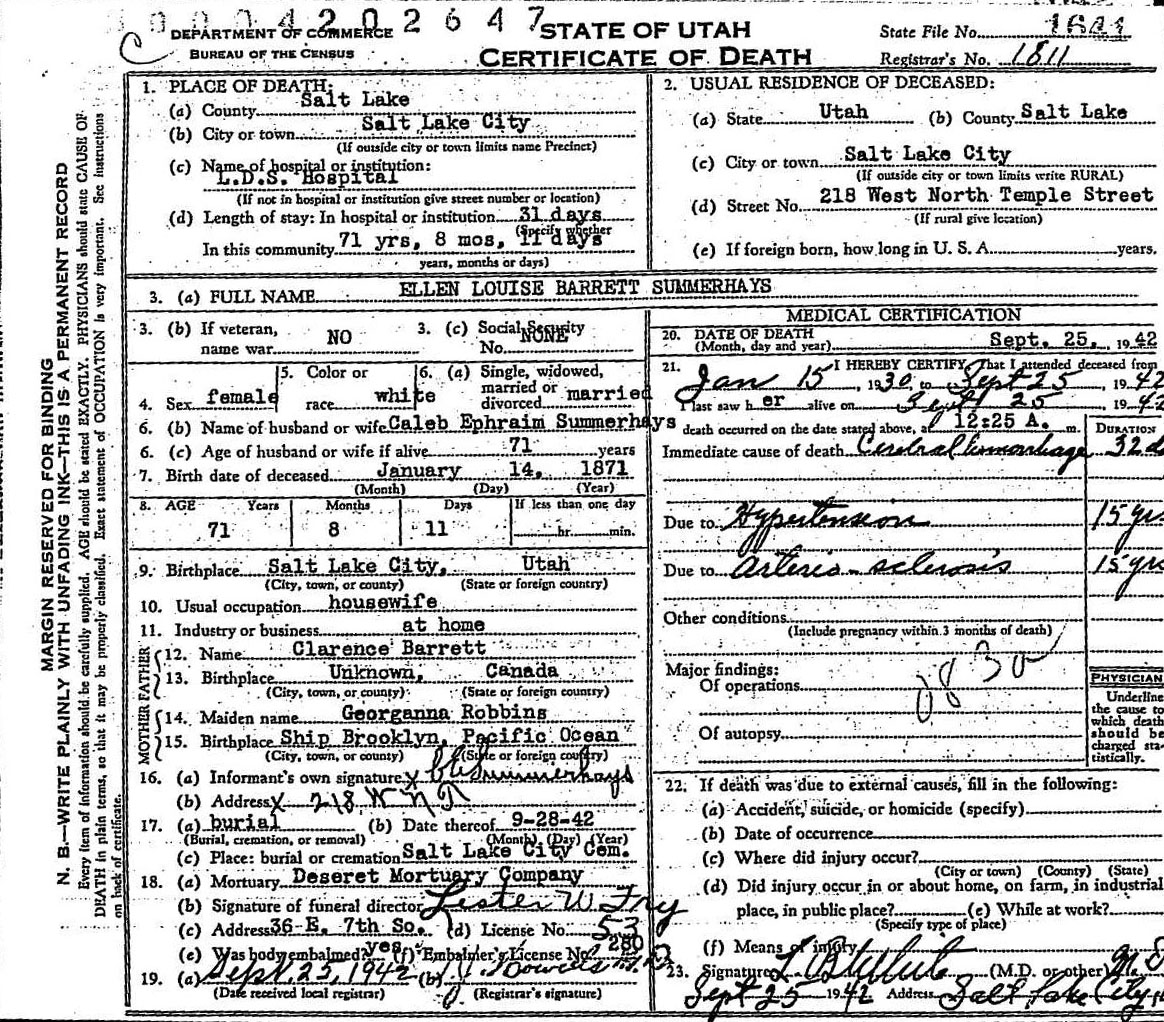 000042026 47
DEPARTMENT OF COMMERCE
BUREAU OF THE CENSUS
STATE OF UTAH
CERTIFICATE OF DEATH
State File No.
Registrar's No. 1811
MARGIN RESERVED FOR BINDING
N. B.—WRITE PLAINLY WITH UNFADING INK—THIS IS A PERMANENT RECORD
Every item of information should be carefully supplied. AGE should be stated EXACTLY. PHYSICIANS should state CAUSE OF
DEATH in plain terms, so that it may be properly classified. Exact statement of OCCUPATION is very important. See instructions
on back of certificate.
1. PLACE OF DEATH:
(a) County Salt Lake
(b) City or town Salt Lake City
(If outside city or town limits name Precinct)
(c) Name of hospital or institution:
L.D.S. Hospital
(If not in hospital or institution give street number or location)
(d) Length of stay: In hospital or institution 31 days
(Specify whether
In this community 71 yrs, 8 mos, 11 days
years, months or days)
2. USUAL RESIDENCE OF DECEASED:
(a) State Utah (b) County Salt Lake
(c) City or town Salt Lake City
(If outside city or town limits write RURAL)
(d) Street No. 218 West North Temple Street
(If rural give location)
(e) If foreign born, how long in U. S. A. years.
3. (a) FULL NAME ELLEN LOUISE BARRETT SUMMERHAYS
3. (b) If veteran, name war NO 3. (c) Social Security No. NONE
4. Sex female 5. Color or race white 6. (a) Single, widowed, married or divorced married
6. (b) Name of husband or wife Caleb Ephraim Summerhays
6. (c) Age of husband or wife if alive 71 years
7. Birth date of deceased January 14, 1871
(Month) (Day) (Year)
8. AGE Years Months Days If less than one day
71 8 11 hr. min.
9. Birthplace Salt Lake City, Utah
(City, town, or county) (State or foreign country)
10. Usual occupation housewife
11. Industry or business at home
FATHER
12. Name Clarence Barrett
13. Birthplace Unknown, Canada
(City, town, or county) (State or foreign country)
MOTHER
14. Maiden name Georganna Robbins
15. Birthplace Ship Brooklyn, Pacific Ocean
(City, town, or county) (State or foreign country)
16. (a) Informant's own signature x C E Summerhays
(b) Address x 218 W N T
17. (a) burial (b) Date thereof 9-28-42
(Burial, cremation, or removal) (Month) (Day) (Year)
(c) Place: burial or cremation Salt Lake City Cem.
18. (a) Mortuary Deseret Mortuary Company
(b) Signature of funeral director Lester W Fry
(c) Address 36-E. 7th So. (d) License No. 53
(e) Was body embalmed? yes (f) Embalmer's License No. 280
19. (a) Sept. 25, 1942 (b) M.D.
(Date received local registrar) (Registrar's signature)
MEDICAL CERTIFICATION
20. DATE OF DEATH
(Month, day and year) Sept. 25, 1942
21. I HEREBY CERTIFY, That I attended deceased from
Jan 15, 1930, to Sept 25, 1942
I last saw her alive on Sept 25 1942
death occurred on the date stated above, at 12:25 A. m.
DURATION
Immediate cause of death Cerebral hemorrhage 32 d
Due to Hypertension 15 yrs
Due to arterio-sclerosis 15 yrs
Other conditions
(Include pregnancy within 3 months of death)
Major findings:
Of operations
Of autopsy
PHYSICIAN
Underline
the cause to
which death
should be
charged sta-
tistically.
22. If death was due to external causes, fill in the following:
(a) Accident, suicide, or homicide (specify)
(b) Date of occurrence
(c) Where did injury occur?
(City or town) (County) (State)
(d) Did injury occur in or about home, on farm, in industrial
place, in public place? (e) While at work?
(Specify type of place)
(f) Means of injury
23. Signature L B White (M.D. or other) M D
Sept 25 1942 Address Salt Lake City